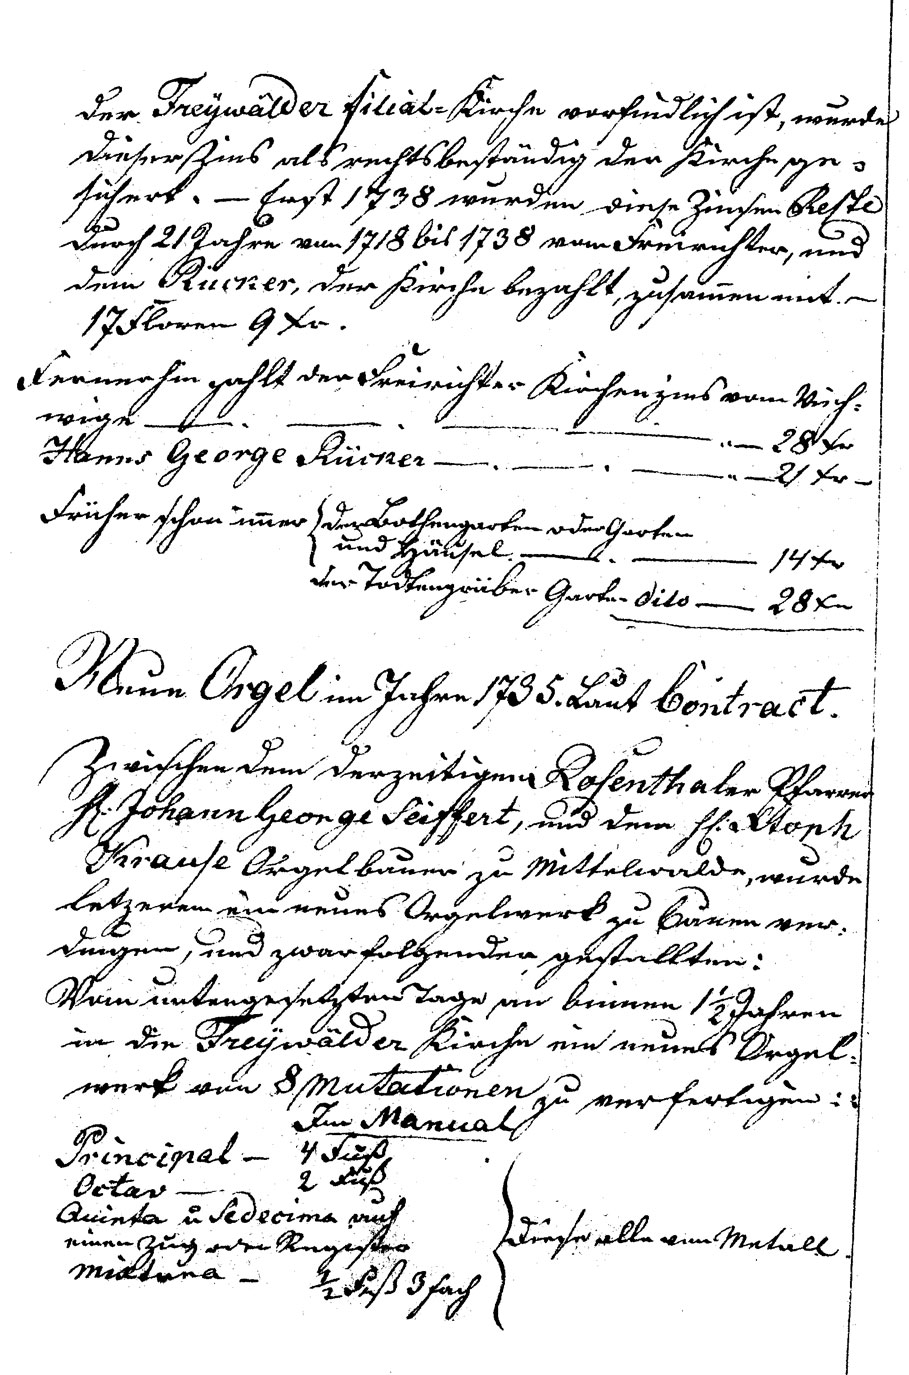 der Freÿwälder filial-Kirche vorfindlich ist, wurde
dieser Zins als rechtsbeständig der Kirche ge-
sichert. — Erst 1738 wurden diese Zinsen Reste
durch 21 Jahre von 1718 bis 1738 vom Freirichter, und
dem Rücker, der Kirche bezahlt, zusam̄en mit —
17 Floren 9 Xr.
Fernerhin zahlt der Freirichter Kirchenzins vom Viech-
wige — 28 Xr
Hanns George Rücker — 21 Xr —
Früher schon im̄er der Bothengarten oder Garten
und Häusel — 14 Xr
der Todtengräber Garten dito — 28 Xr
Neue Orgel im Jahre 1735. Laut Contract.
Zwischen dem derzeitigen Rosenthaler Pfarrer
H. Johann George Seiffert, und dem H. Xtoph
Krause Orgelbauer zu Mittelwalde, wurde
letzerem ein neues Orgelwerk zu bauen ver-
dungen, und zwar folgender gestallten:
Vom untengesetzten Tage an binnen 1½ Jahren
in die Freÿwälder Kirche ein neues Orgel-
werk von 8 Mutationen zu verfertigen::
Im Manual
Principal — 4 Fuß
Octav — 2 Fuß
Quinta u Sedecima auf
einen Zug oder Register
Mixtura — ½ Fuß 3 fach
Diese alle von Metall.